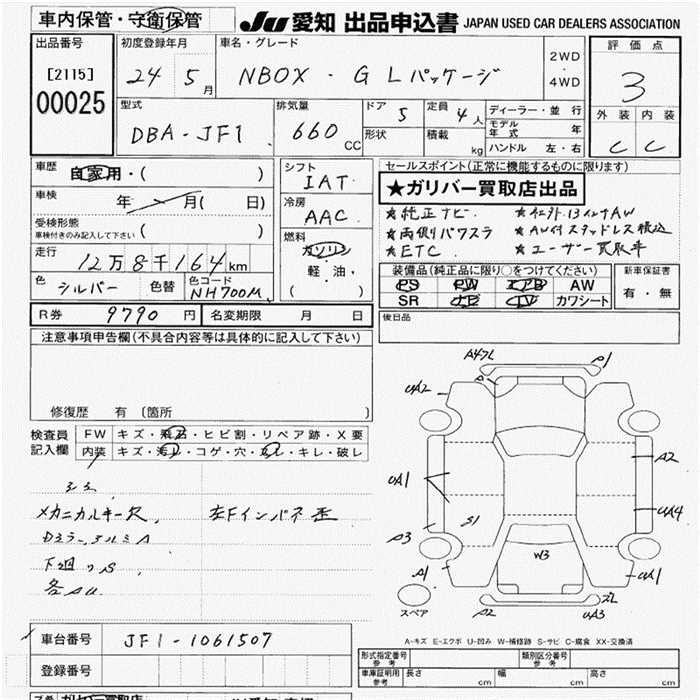 車内保管・守衛保管
JU 愛知 出品申込書 JAPAN USED CAR DEALERS ASSOCIATION
出品番号
[2115]
00025
初度登録年月
24 5月
車名・グレード
NBOX・G Lパッケージ
2WD・4WD
評価点
3
外装 内装
C C
型式
DBA-JF1
排気量
660cc
ドア 5
形状
定員 4人
積載 kg
ディーラー・並行
モデル年式 年
ハンドル 左・右
車歴
自家用・( )
車検 年 月( 日)
受検形態
車検付きのみ記入して下さい ( )
走行
12万8千164km
色 シルバー 色替
色コード NH700M
シフト
IAT
冷房
AAC
燃料
ガソリン
軽油・
( )
セールスポイント(正常に機能するものに限ります)
★ガリバー買取店出品
★純正ナビ ★社外13インチAW
★両側パワスラ ★AW付スタッドレス積込
★ETC ★ユーザー買取車
装備品(純正品に限り○をつけてください)
PS PW エアB AW
SR ナビ TV カワシート
新車保証書
有・無
R券 9790円
名変期限 月 日
後日品
注意事項申告欄(不具合内容等は具体的に記入して下さい)
修復歴 有 [箇所 ]
検査員記入欄
FW キズ・飛石・ヒビ割・リペア跡・X要
内装 キズ・汚レ・コゲ・穴・スレ・キレ・破レ
メカニカルキー欠 左Fインパネ歪
Dミラー、アルミA
下廻りS
各AU
A4フL
P1
A
UA2
UA1
A2
UA4
S1
A3
W3
A1
UA1
A2
UA3
スペア
A-キズ E-エクボ U-凹み W-補修跡 S-サビ C-腐食 XX-交換済
車台番号 JF1-1061507
登録番号
形式指定番号 参考
類別区分番号 参考
車庫証明用 参考 長さ cm 幅 cm 高さ cm
ガリバー買取店